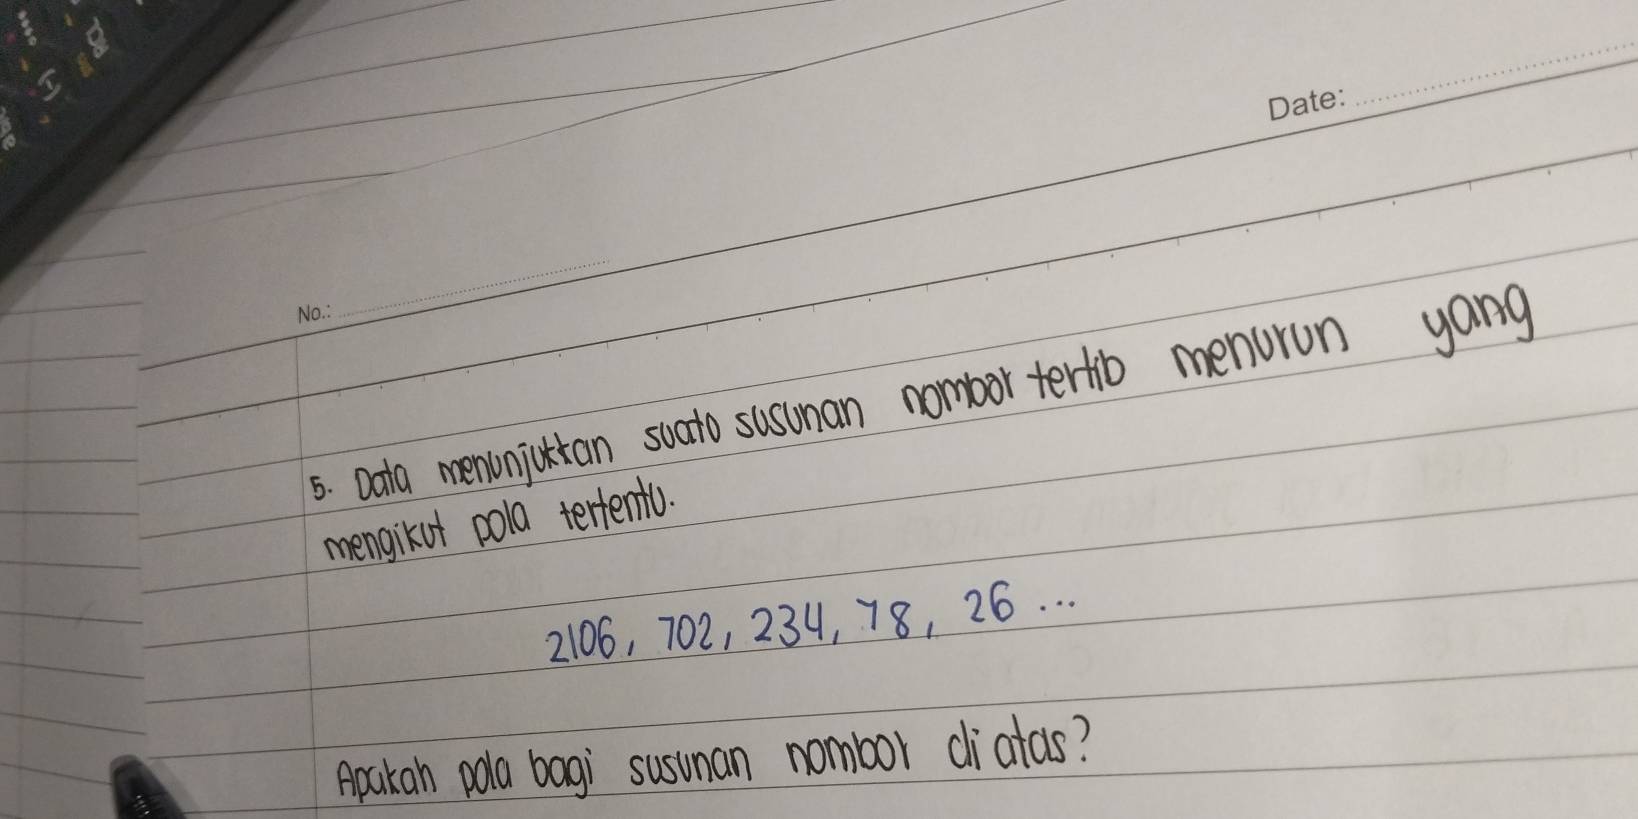 Date:
No.:
5. Data menunjukkan suato susunan nombor tertib menurun yang
mengikut pola tertentu.
2106, 702, 234, 78, 26 ...
Apakah pola bagi susunan nombor di atas?